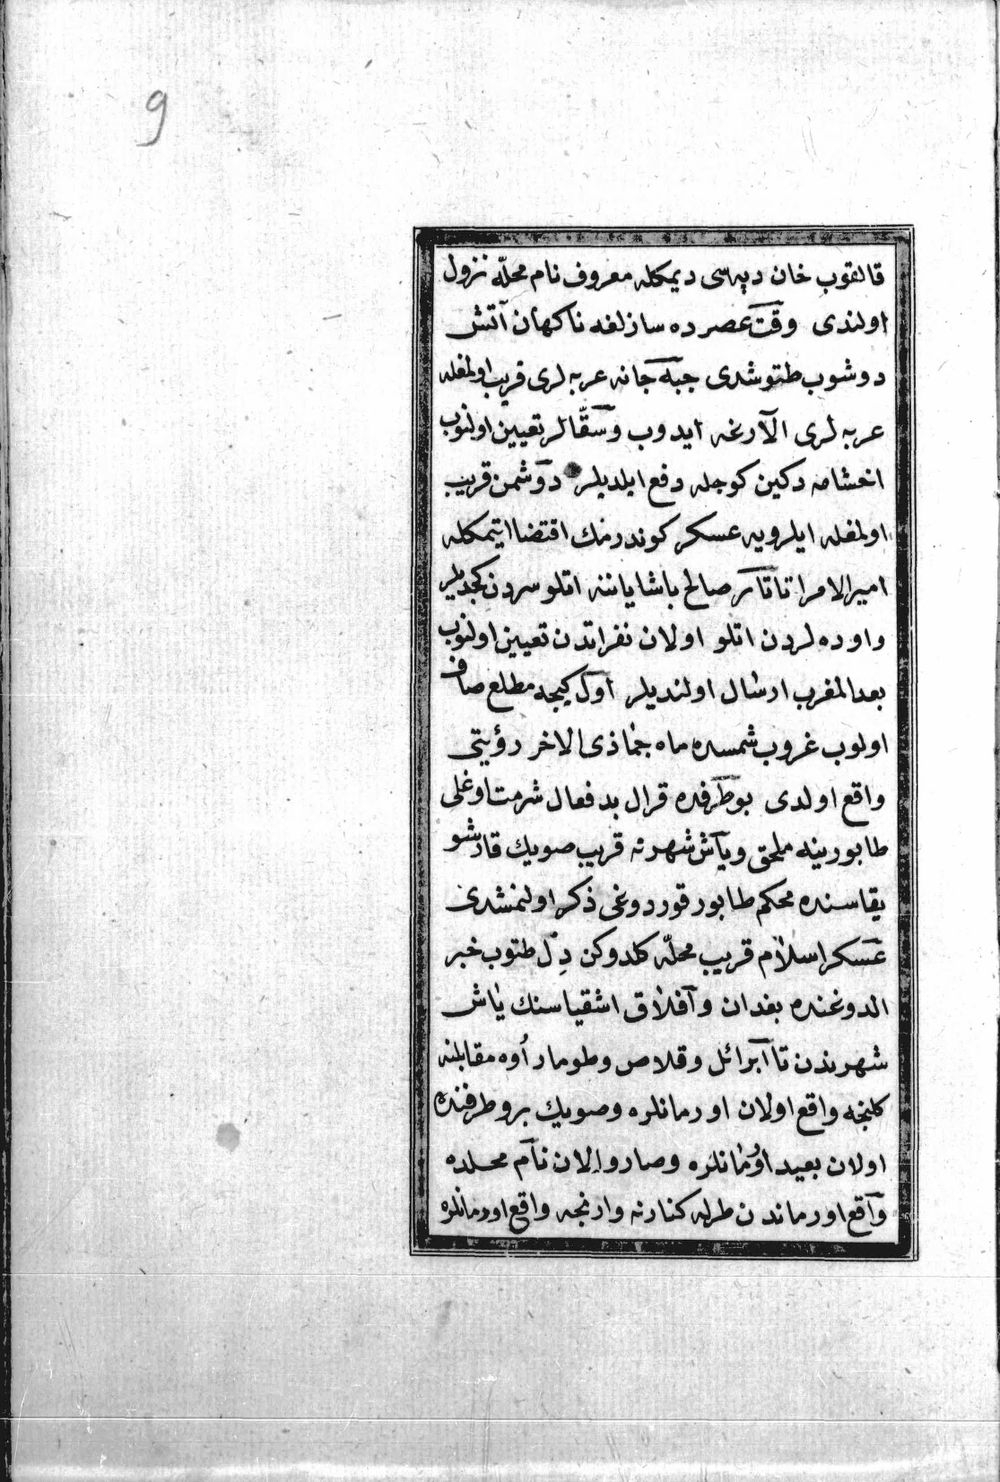 9
قالقوب خان دپه‌سی دیمکله معروف نام محلّه نزول
اولندی وقت عصرده سازلغه ناکهان آتش
دوشوب طتوشدی جبه جانه عربه لری قریب اولمغله
عربه لری الارغه ایدوب وسقّالر تعیین اولنوب
اخشامه دکین کوجله دفع ایلدیلر دوشمن قریب
اولمغله ایلرویه عسکر کوندرمك اقتضا ایتمکله
امیر الامرا تاتار صالح پاشا یاننه اتلو سردن کچدیلر
واوده لردن اتلو اولان نفراتدن تعیین اولنوب
بعد المغرب ارسال اولندیلر اول کیجه مطلع صاف
اولوب غروب شمسده ماه جماذی الاخر رؤیتی
واقع اولدی بو طرفده قرال بدفعال شرمت اوغلی
طابورینه ملحق ویاش شهرنه قریب صویك قارشو
یقاسنده محکم طابور قوردوغی ذکر اولنمشدی
عسکر اسلام قریب محلّه کلدوکن دِل طتوب خبر
الدوغنده بغدان وآفلاق اشقیاسنك یاش
شهرندن تا آبرائل وقلاص وطومار اُوه مقابلنه
کلنجه واقع اولان اورمانلره وصویك برو طرفنده
اولان بعید اورمانلره وصاروالان نام محلده
واقع اورماندن طرله کنارنه وارنجه واقع اورمانلره